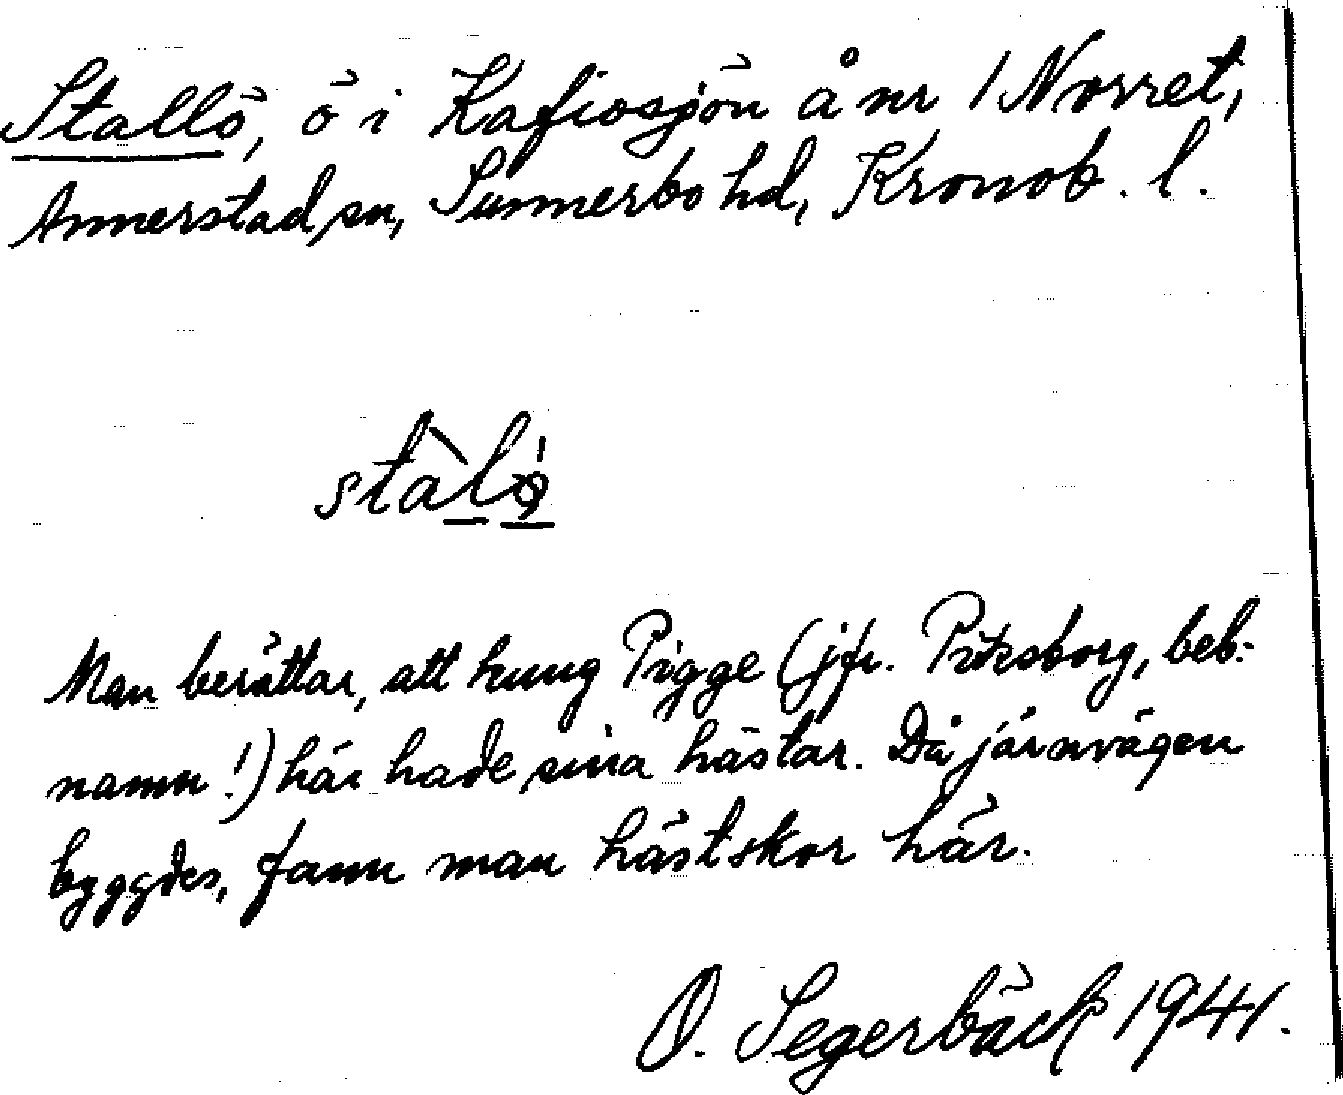 Stallö, ö i Kafiosjön å nr 1 Norret,
Annerstad sn, Sunnerbo hd, Kronob. l.
stàlö́
Man berättar, att kung Pigge (jfr. Piksborg, beb.-
namn!) här hade sina hästar. Då järnvägen
byggdes, fann man hästskor här.
O. Segerbäck 1941.